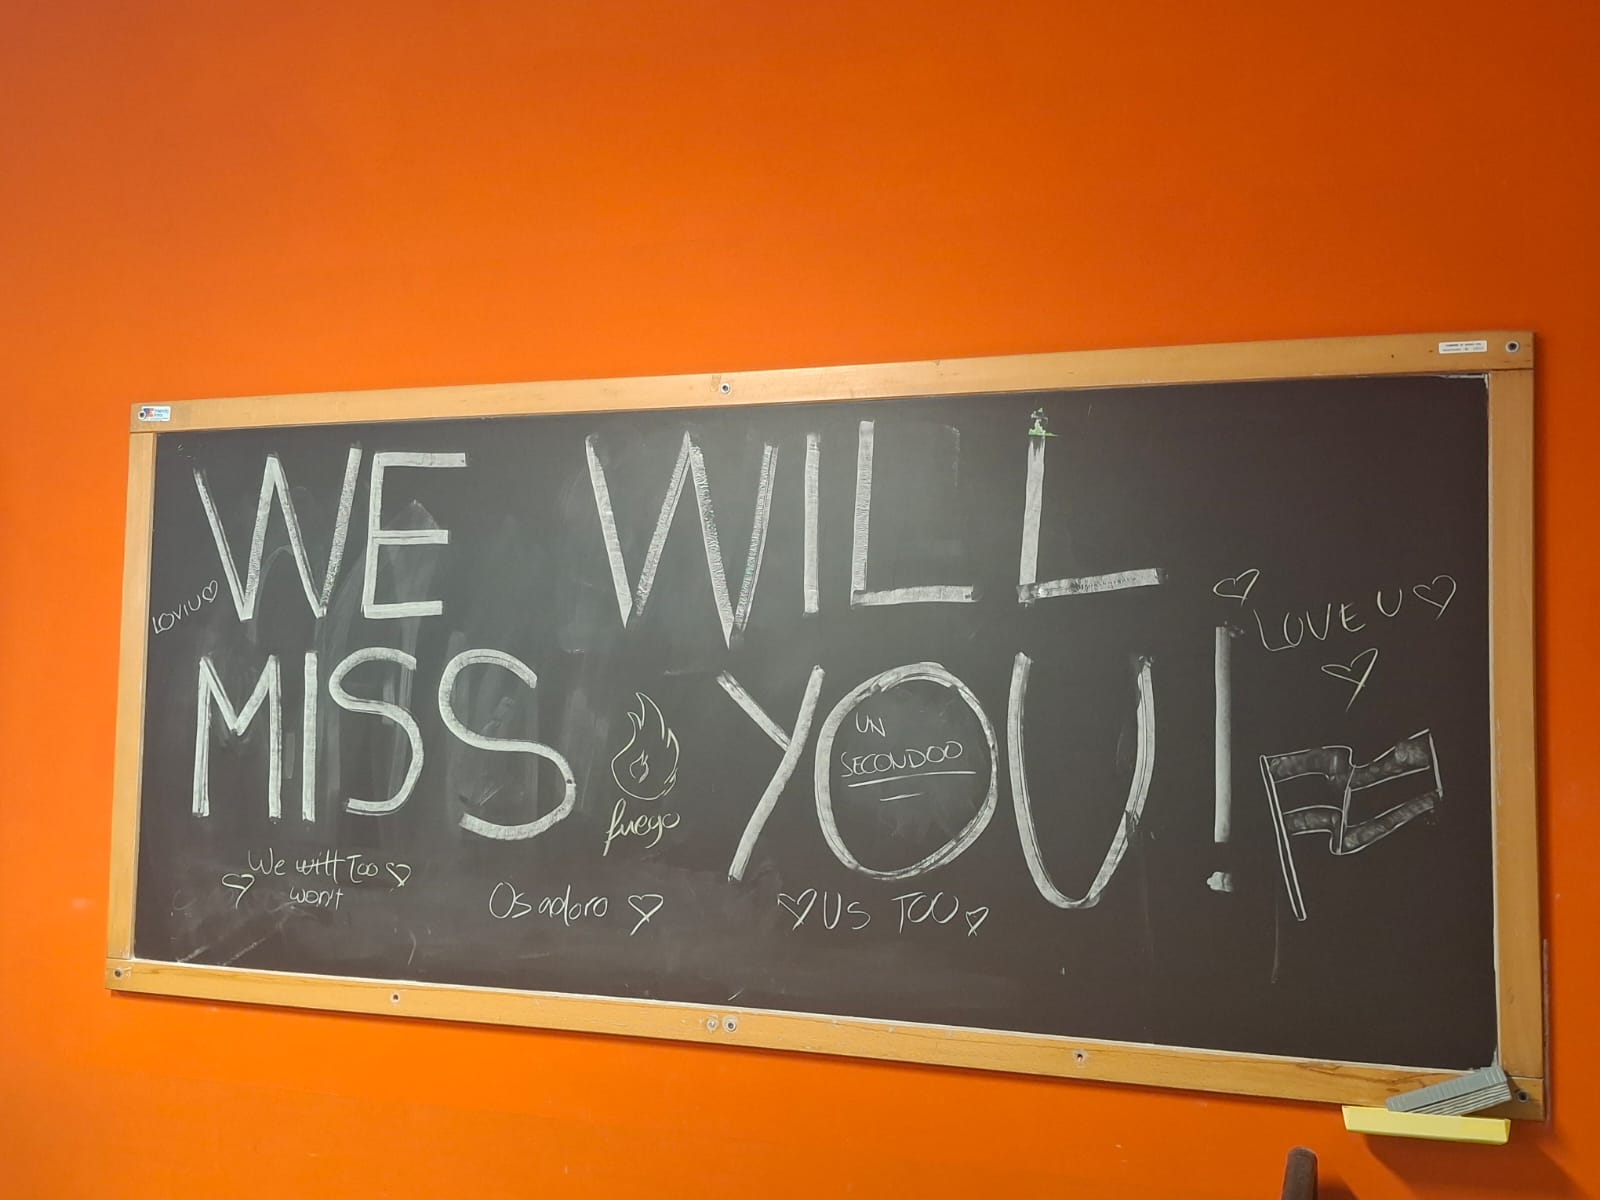 WE WILL
LOVIU
MISS YOU!
LOVE U
UN
SECONDOO
fuego
We will Too
won't
Os adoro
US TOO